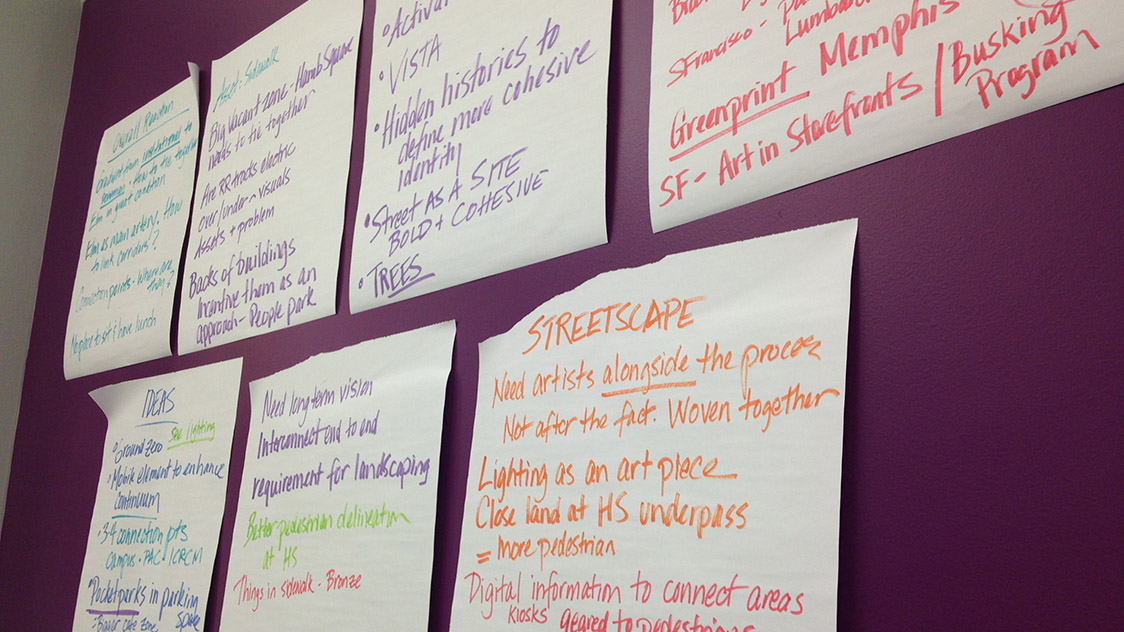 Overall Reaction
Gradient from institutional to
How to tie together
Elm in great condition
Elm as main artery. How
to link corridors?
Connection points - Where are
they?
No place to sit & have lunch
Asset: Sidewalk
Big Vacant zone - Hamb Square
needs to tie together
Are RR tracks electric
over/under - visuals
Assets + problem
Backs of buildings
Incentive them as an
approach - People park
• VISTA
• Hidden histories to
define more cohesive
identity
• Street AS A SITE
BOLD + COHESIVE
• TREES
SFrancisco -
Lumbard
Greenprint Memphis
SF - Art in Storefronts / Busking
Program
IDEAS
Ground Zero See lighting
• Mobile element to enhance
continuum
• 3-4 connection pts
campus • PAC • ICRCM
• Pocket parks in parking
space
Need long term vision
Interconnect end to end
requirement for landscaping
Better pedestrian delineation
at HS
Things in sidewalk - Bronze
STREETSCAPE
Need artists alongside the process
Not after the fact. Woven together
Lighting as an art piece
Close land at HS underpass
= more pedestrian
Digital information to connect areas
KIOSKS geared to pedestrians